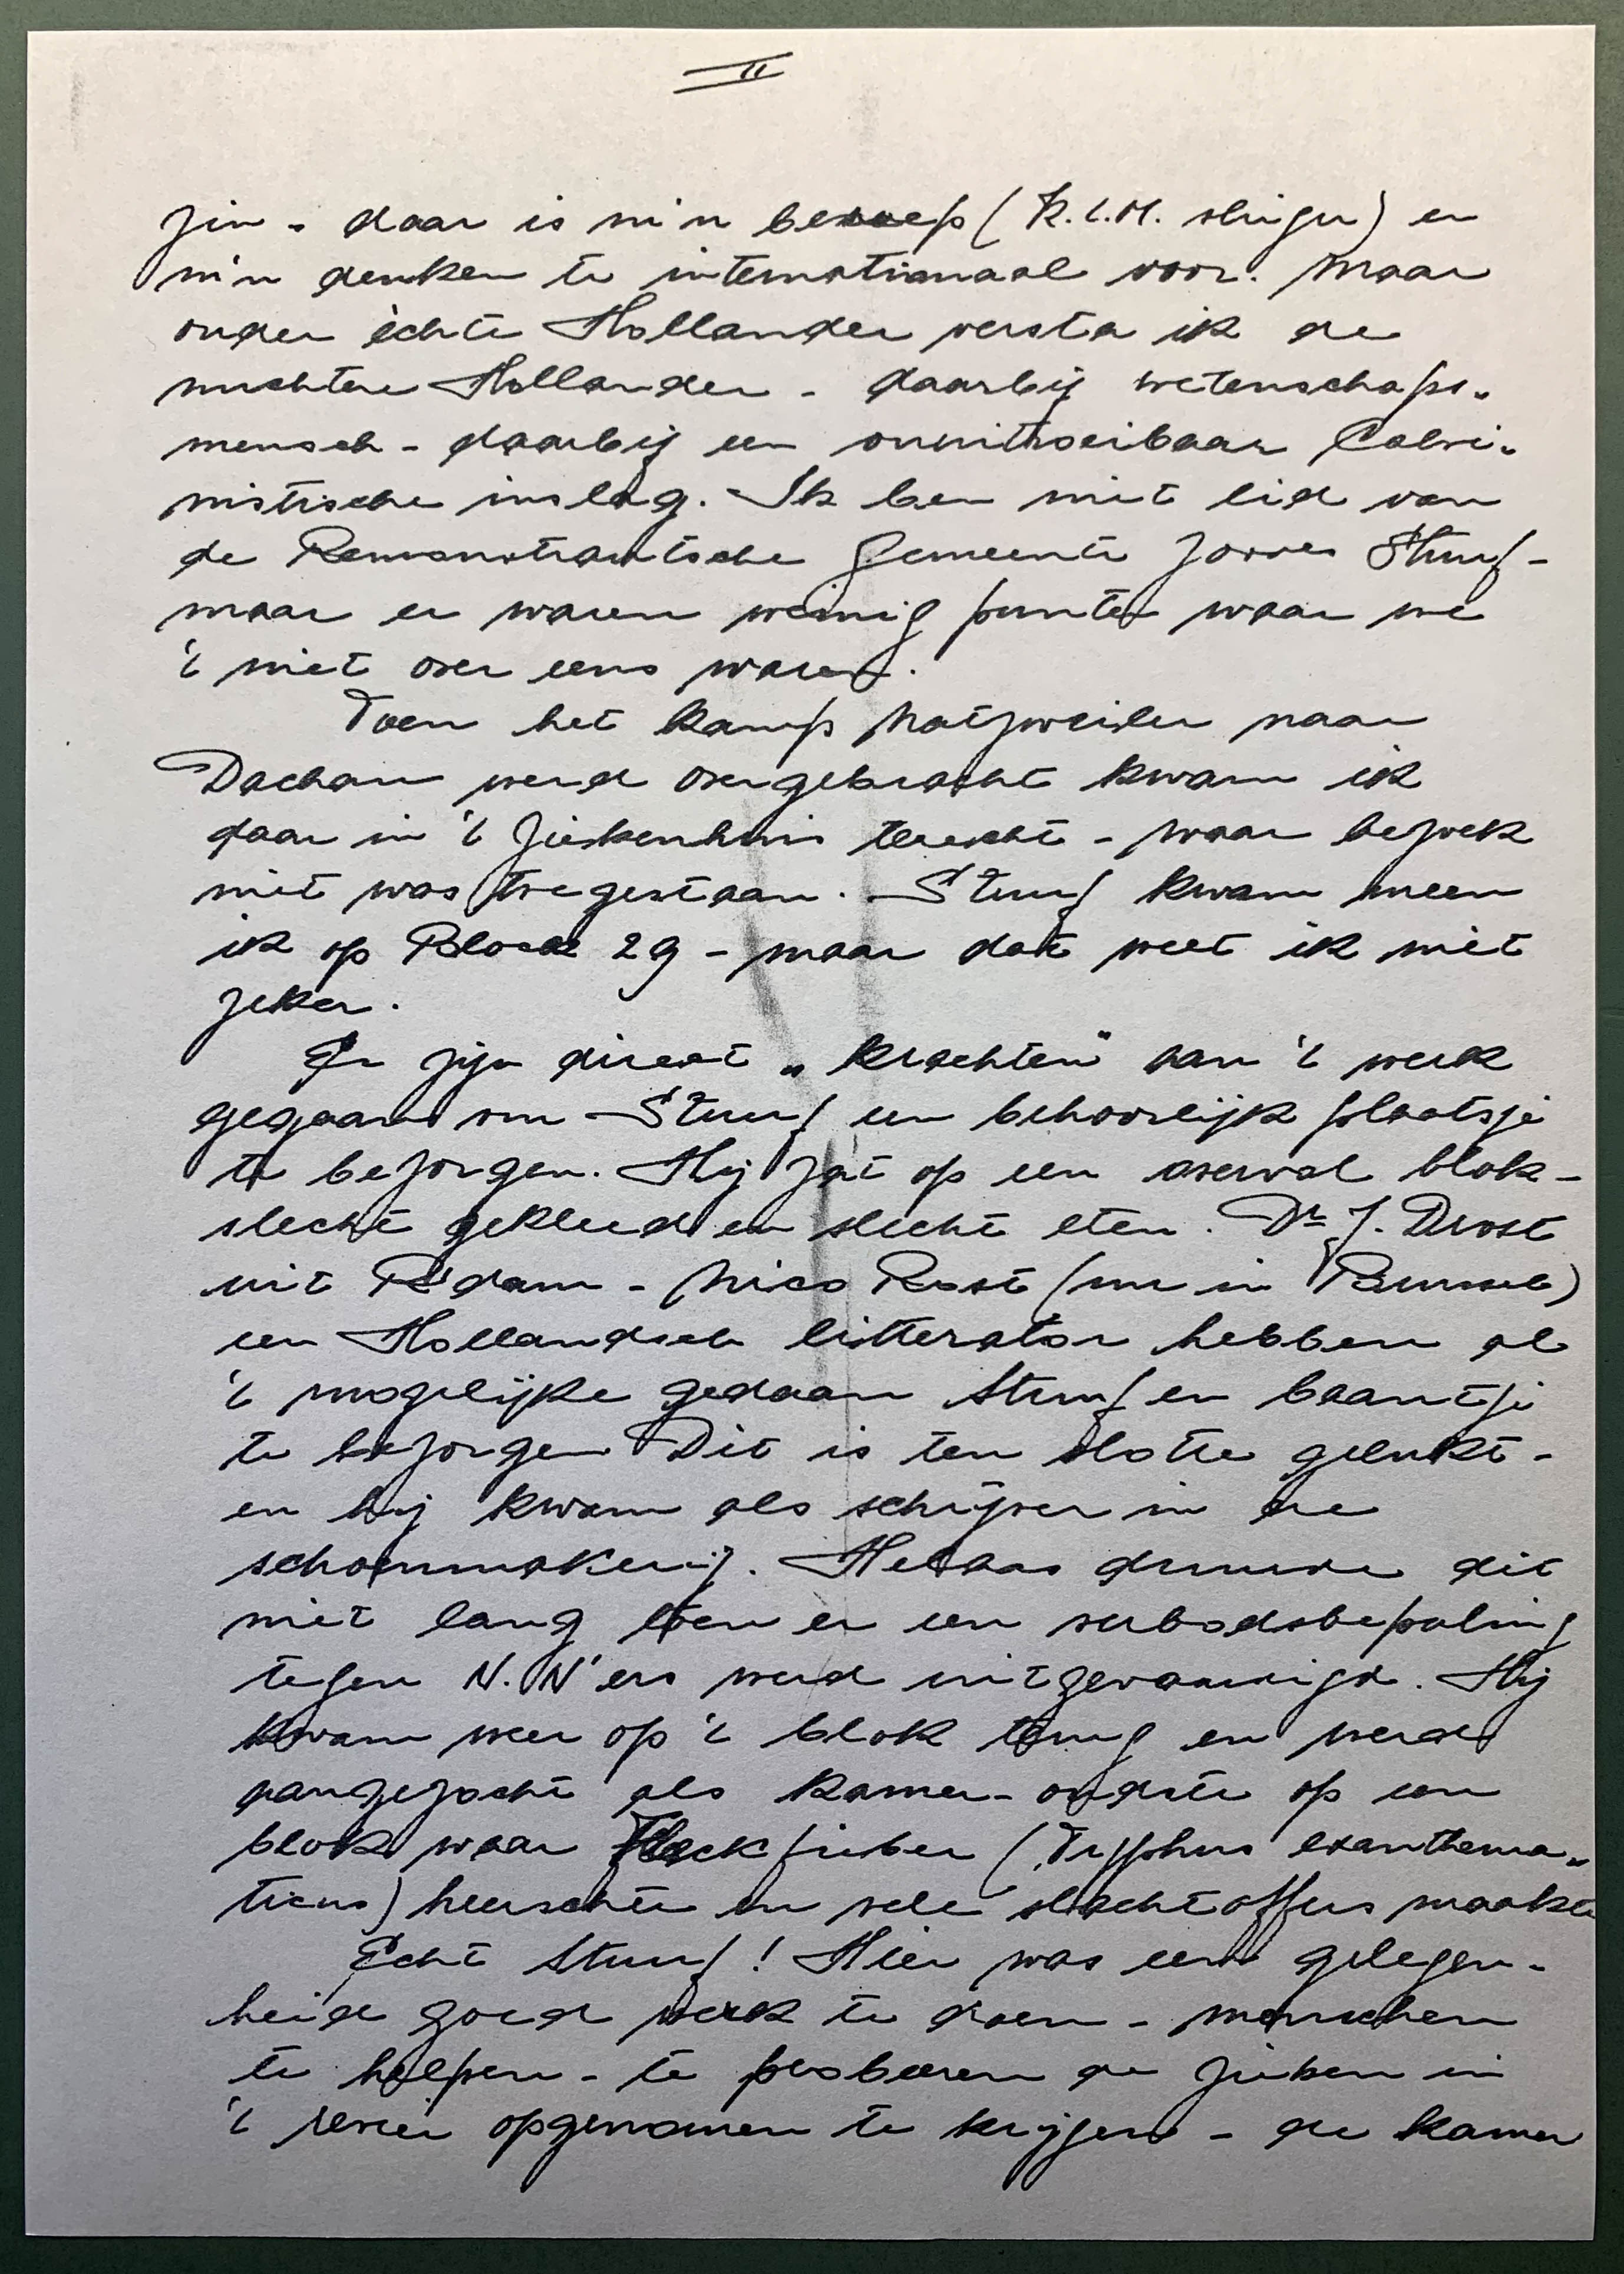 II
zin - daar is m'n beroep (K.L.M. vlieger) en
m'n denken te internationaal voor. Maar
onder èchte Hollander versta ik de
nuchtere Hollander - daarbij wetenschaps-
mensch - daarbij een onuitroeibaar Calvi-
nistische inslag. Ik ben niet lid van
de Remonstrantsche Gemeente zooals Stuuf -
maar er waren weinig punten waar we
't niet over eens waren.
Toen het kamp Natzweiler naar
Dachau werd overgebracht kwam ik
daar in 't ziekenhuis terecht - waar bezoek
niet was toegestaan. Stuuf kwam meen
ik op Block 29 - maar dat weet ik niet
zeker.
Er zijn direct „krachten" aan 't werk
gegaan om Stuuf een behoorlijk plaatsje
te bezorgen. Hij zat op een overvol blok -
slecht gekleed en slecht eten. Dr J. Drost
uit R'dam - Nico Rost (nu in Brussel)
een Hollandsch litterator hebben al
't mogelijke gedaan Stuuf en baantje
te bezorgen Dit is ten slotte gelukt -
en hij kwam als schrijver in de
schoenmakerij. Helaas duurde dit
niet lang toen er een verbodsbepaling
tegen N.N'ers werd uitgevaardigd. Hij
kwam weer op 't blok terug en werd
aangezocht als kamer-oudste op een
blok waar Fleckfieber (Typhus exanthema-
ticus) heerschte en vele slachtoffers maakte
Echt Stuuf! Hier was een gelegen-
heid goed werk te doen - menschen
te helpen - te probeeren de zieken in
't revier opgenomen te krijgen - de kamer